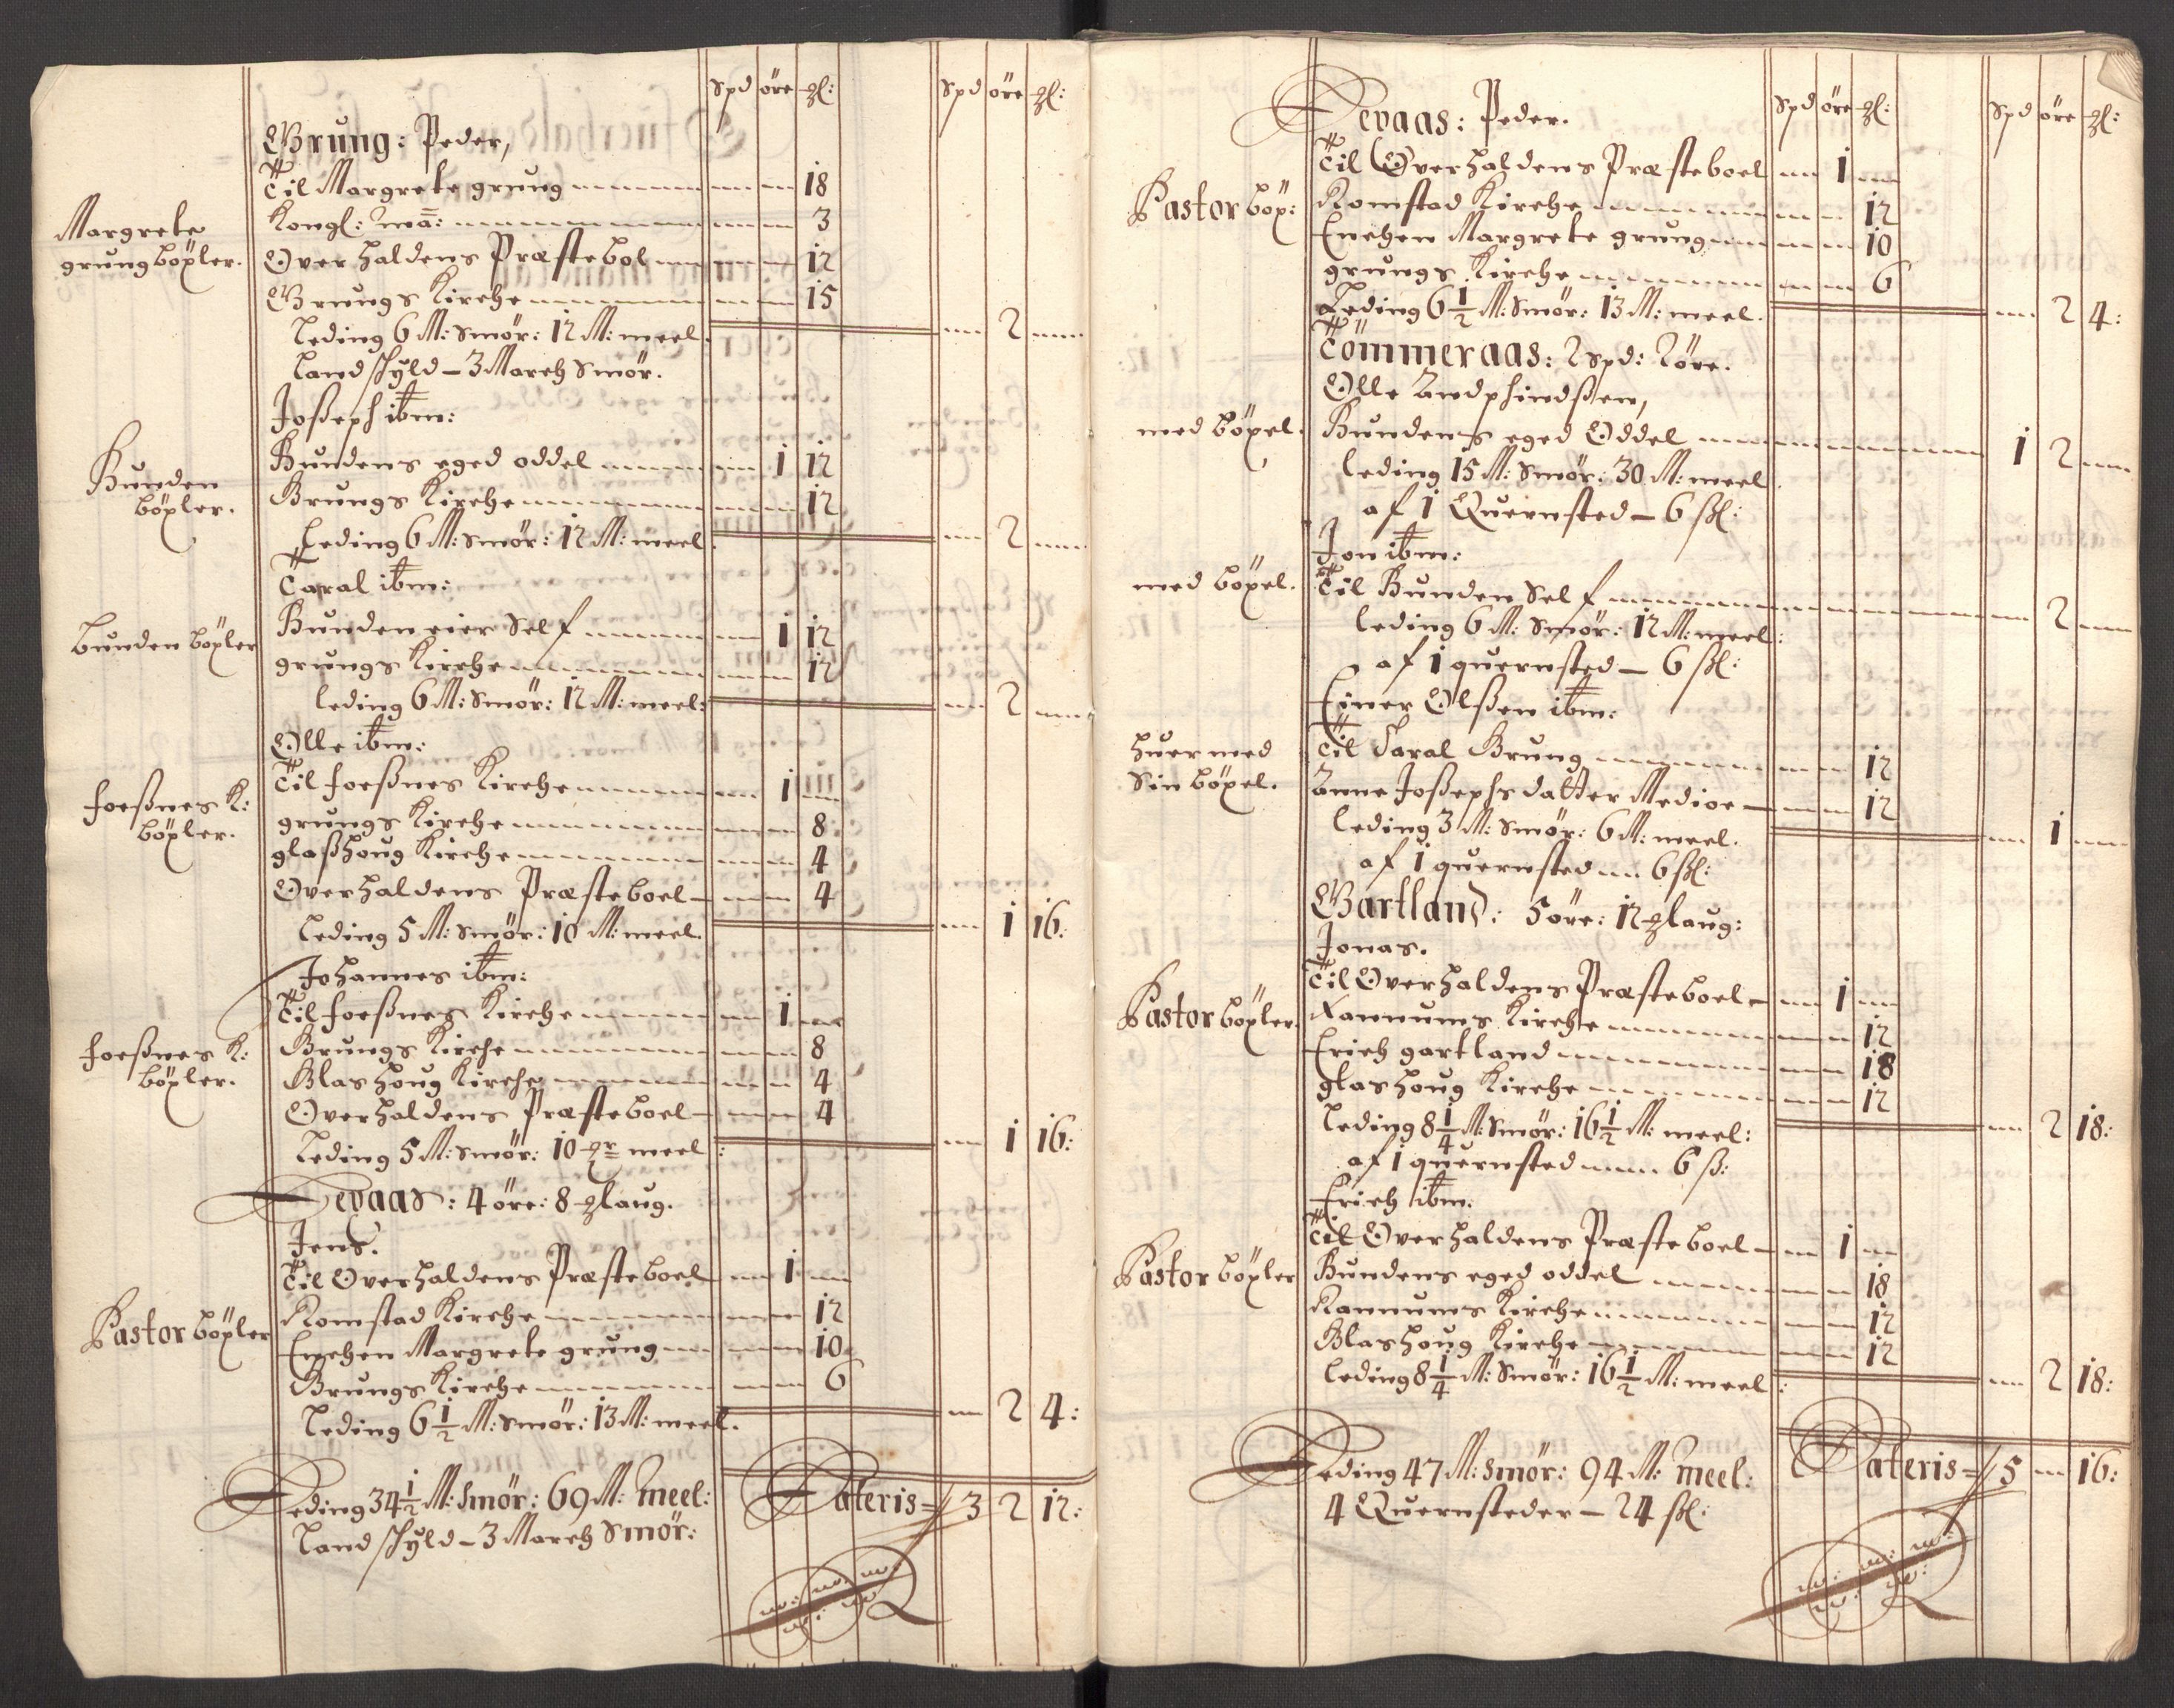 Spd öre gl: Spd öre gl:
Grung: Peder,
Til Margrete grung 18
Margrete
grung böxler.
Kongl: Ma: 3
Overhaldens Præstebol 12
Grungs Kirche 15
Leding 6 M: Smör: 12 M: meel. 2
Landschyld - 3 March Smör.
Joßeph ibm:
Bunden
böxler.
Bundens eged oddel 1 12
Brungs Kirche 12
Leding 6 M: Smör: 12 M: meel. 2
Taral ibm:
Bunden böxler
Bunden eier Self 1 12
grungs Kirche 12
leding 6 M: Smör: 12 M: meel: 2
Olle ibm:
foeßnes K:
böxler.
Til foeßnes Kirche 1
grungs Kirche 8
glaßhoug Kirche 4
Overhaldens Præsteboel 4
Leding 5 M: Smör: 10 M: meel. 1 16:
Johannes ibm:
foeßnes K:
böxler.
Til foeßnes Kirche 1
Grungs Kirche 8
Glashoug Kirche 4
Overhaldens Præsteboel 4
Leding 5 M: Smör: 10 gr meel: 1 16:
Devaas: 4 öre: 8 glaug.
Jens.
Til Overhaldens Præsteboel 1
Pastor böxler
Romstad Kirche 12
Enchen Margrete grung 10
Grungs Kirche 6
Leding 6 1/2 M: Smör: 13 M: meel. 2 4:
Leding 34 1/2 M: Smör: 69 M: Meel: Lateris = 3 2 12:
Landschyld - 3 March Smör:
Spd öre gl: Spd öre gl:
Devaas: Peder.
Til Overhaldens Præsteboel 1
Pastor böx:
Romstad Kirche 12
Enchen Margrete grung 10
grungs Kirche 6
Leding 6 1/2 M: Smör: 13 M: meel. 2 4:
Tömmeraas: 2 Spd: 2 öre.
Olle Andphindßen,
med böxel. Bundens eged Oddel 1 2
leding 15 M: Smör: 30 M: meel.
af 1 Quernsted - 6 ßl:
Jon ibm:
med böxel. Til Bunden Self 2
leding 6 M: Smör: 12 M: meel:
af 1 quernsted - 6 ßl:
Einer Olßen ibm:
huer med
Sin böxel.
Til Taral Grung 12
Anne Joßephsdatter Medioe 12
leding 3 M: Smör: 6 M: meel. 1
af 1 quernsted 6 ßl:
Gartland: 5 öre: 12 glaug:
Jonas.
Til Overhaldens Præsteboel 1
Pastor böxler.
Rannums Kirche 12
Erich gartland 18
glashoug Kirche 12
Leding 8 1/4 M: Smör: 16 1/2 M: meel: 2 18:
af 1 quernsted 6 ß:
Erich ibm.
Til Overhaldens Præsteboel 1
Pastor böxler
Bundens eged oddel 18
Rannums Kirche 12
Glashoug Kirche 12
leding 8 1/4 M: Smör: 16 1/2 M: meel: 2 18:
Leding 47 M: Smör: 94 M: Meel: Lateris = 5 16:
4 Quernsteder - 24 ßl: